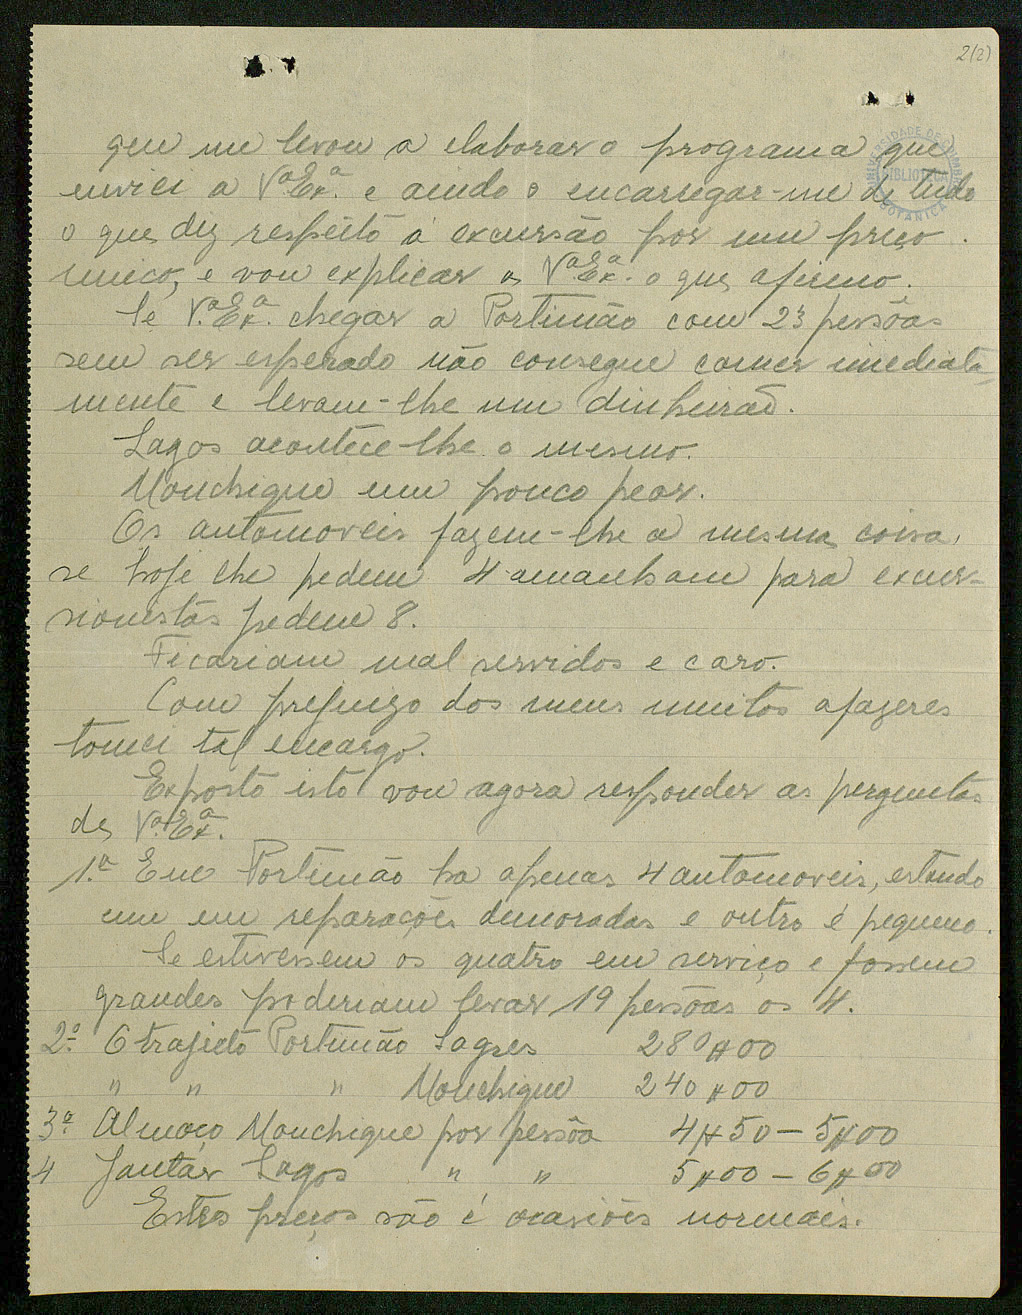 2(2)
que me levou a elaborar o programa que
enviei a V.ª Ex.ª e ainda o encarregar-me de tudo
o que diz respeito á excursão por um preço
unico, e vou explicar a V.ª Ex.ª o que afirmo.
Se V.ª Ex.ª chegar a Portimão com 23 pessôas
sem ser esperado não consegue comer imediata
mente e levam-lhe um dinheirão.
Lagos acontece-lhe o mesmo.
Monchique um pouco peor.
Os automoveis fazem-lhe a mesma coisa,
se hoje lhe pedem 4 amanham para excur-
sionistas pedem 8.
Ficariam mal servidos e caro.
Com prejuizo dos meus muitos afazeres
tomei tal encargo.
Exposto isto vou agora responder as perguntas
de V.ª Ex.ª
1.ª Em Portimão ha apenas 4 automoveis, estando
um em reparações demoradas e outro é pequeno.
Se estivessem os quatro em serviço e fossem
grandes poderiam levar 19 pessôas os 4.
2.º O trajecto Portimão Sagres 280$00
" " " Monchique 240$00
3.º Almoço Monchique por pessôa 4$50 – 5$00
4 Jantar Lagos " " 5$00 – 6$00
Estes preços são é ocasiões normais.
UNIVERSIDADE DE COIMBRA
BIBLIOTECA
BOTANICA